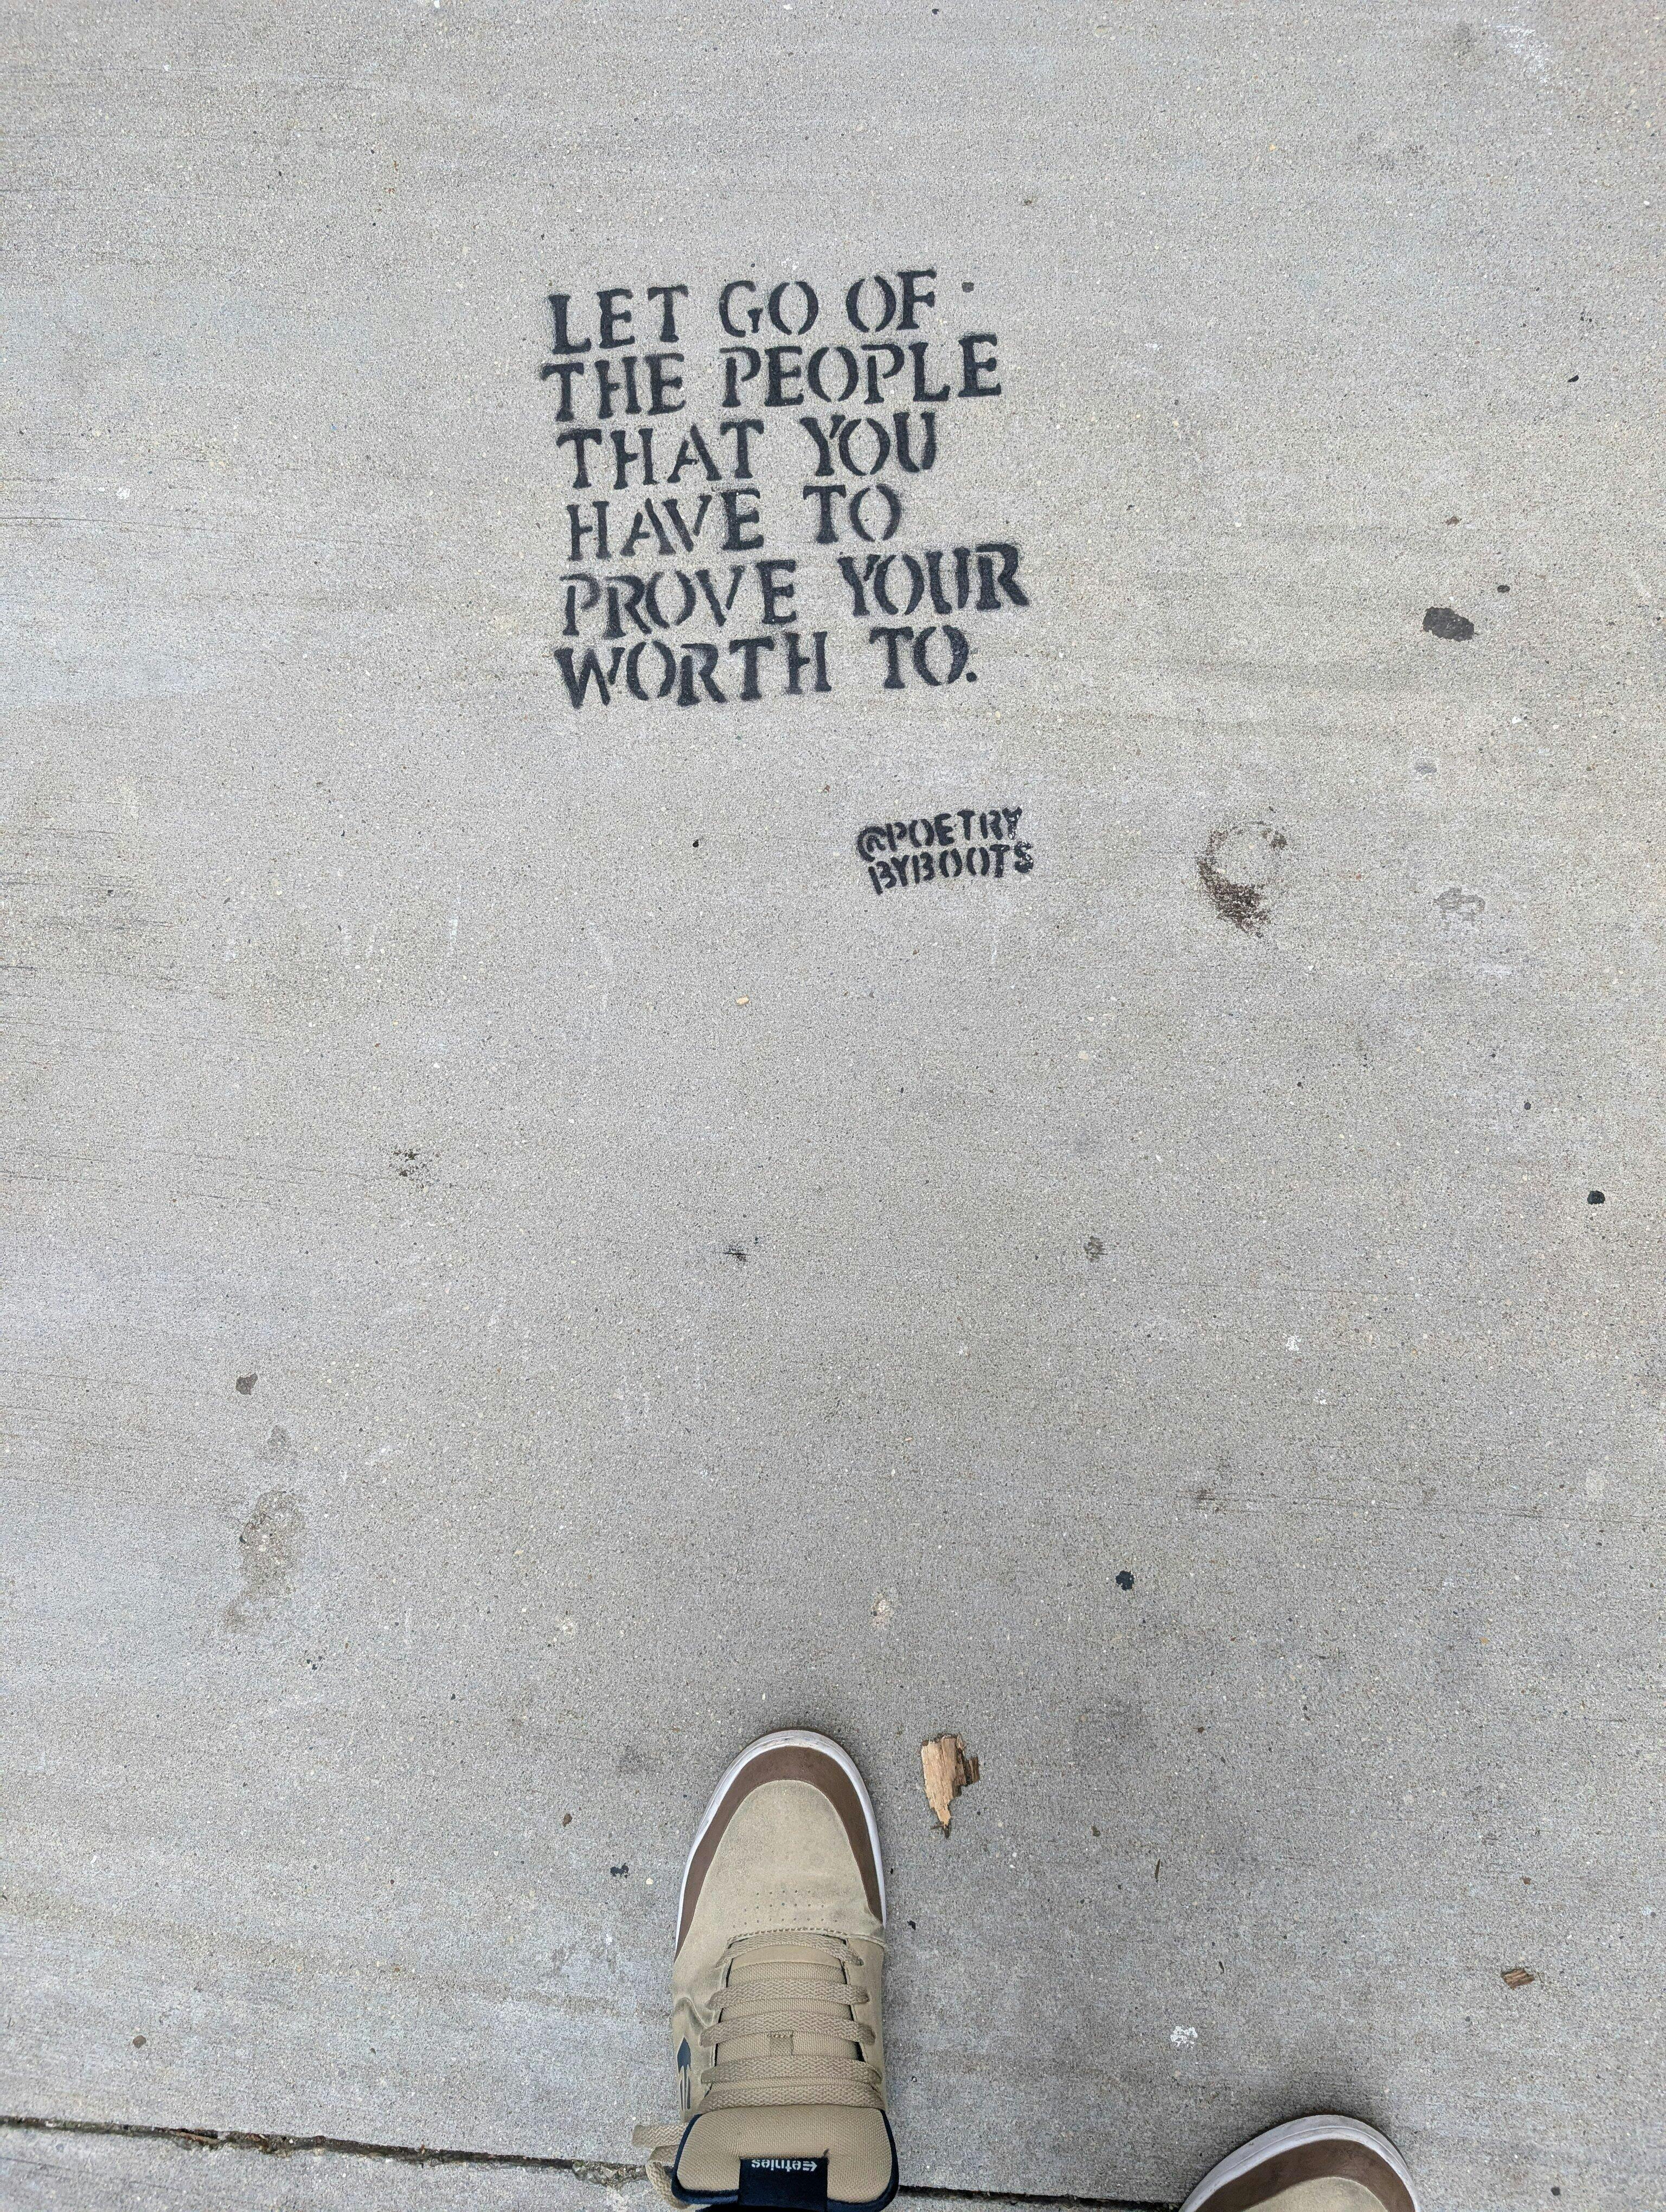 LET GO OF
THE PEOPLE
THAT YOU
HAVE TO
PROVE YOUR
WORTH TO.
@POETRY
BYBOOTS
etnies